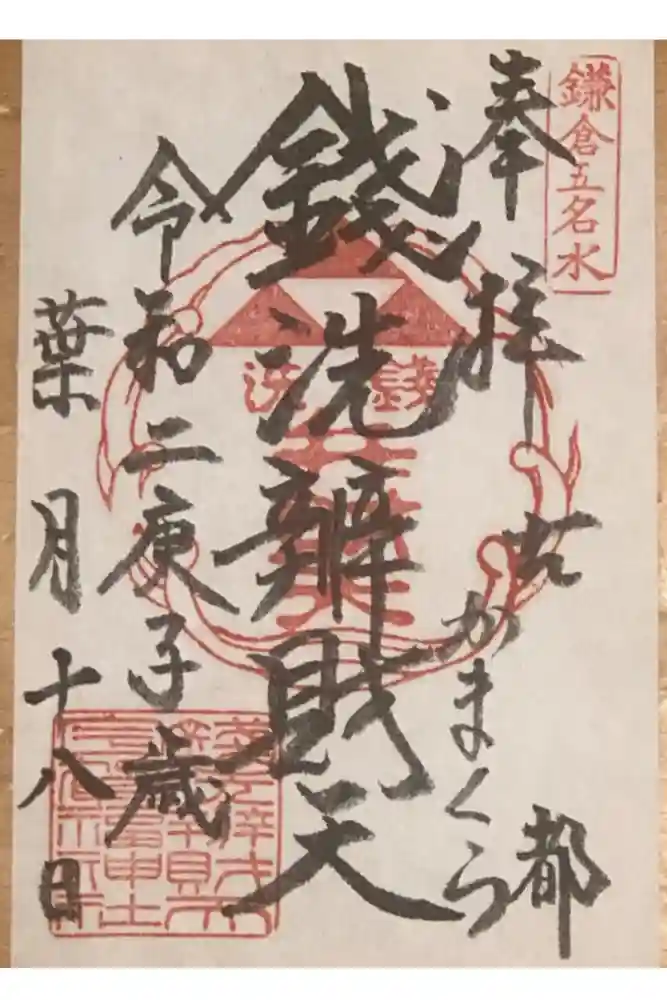 鎌倉五名水
奉拝
古都
かまくら
銭洗辨財天
銭洗
令和二庚子歳
葉月十八日